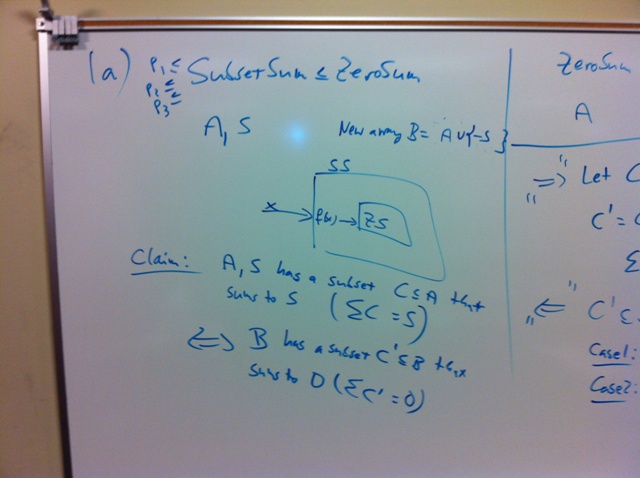 (a) P₁ ≤ SubsetSum ≤ ZeroSum
P₂ ≤
P₃ ≤
A, S
New array B = A ∪ {-S}
SS
x f(x) → ZS
Claim: A, S has a subset C ⊆ A that
sums to S (ΣC = S)
⇔ B has a subset C' ⊆ B that
sums to 0 (ΣC' = 0)
ZeroSum
A
"⇒" Let C
C' =
Σ
"⇐" C' ⊆
Case 1:
Case 2: